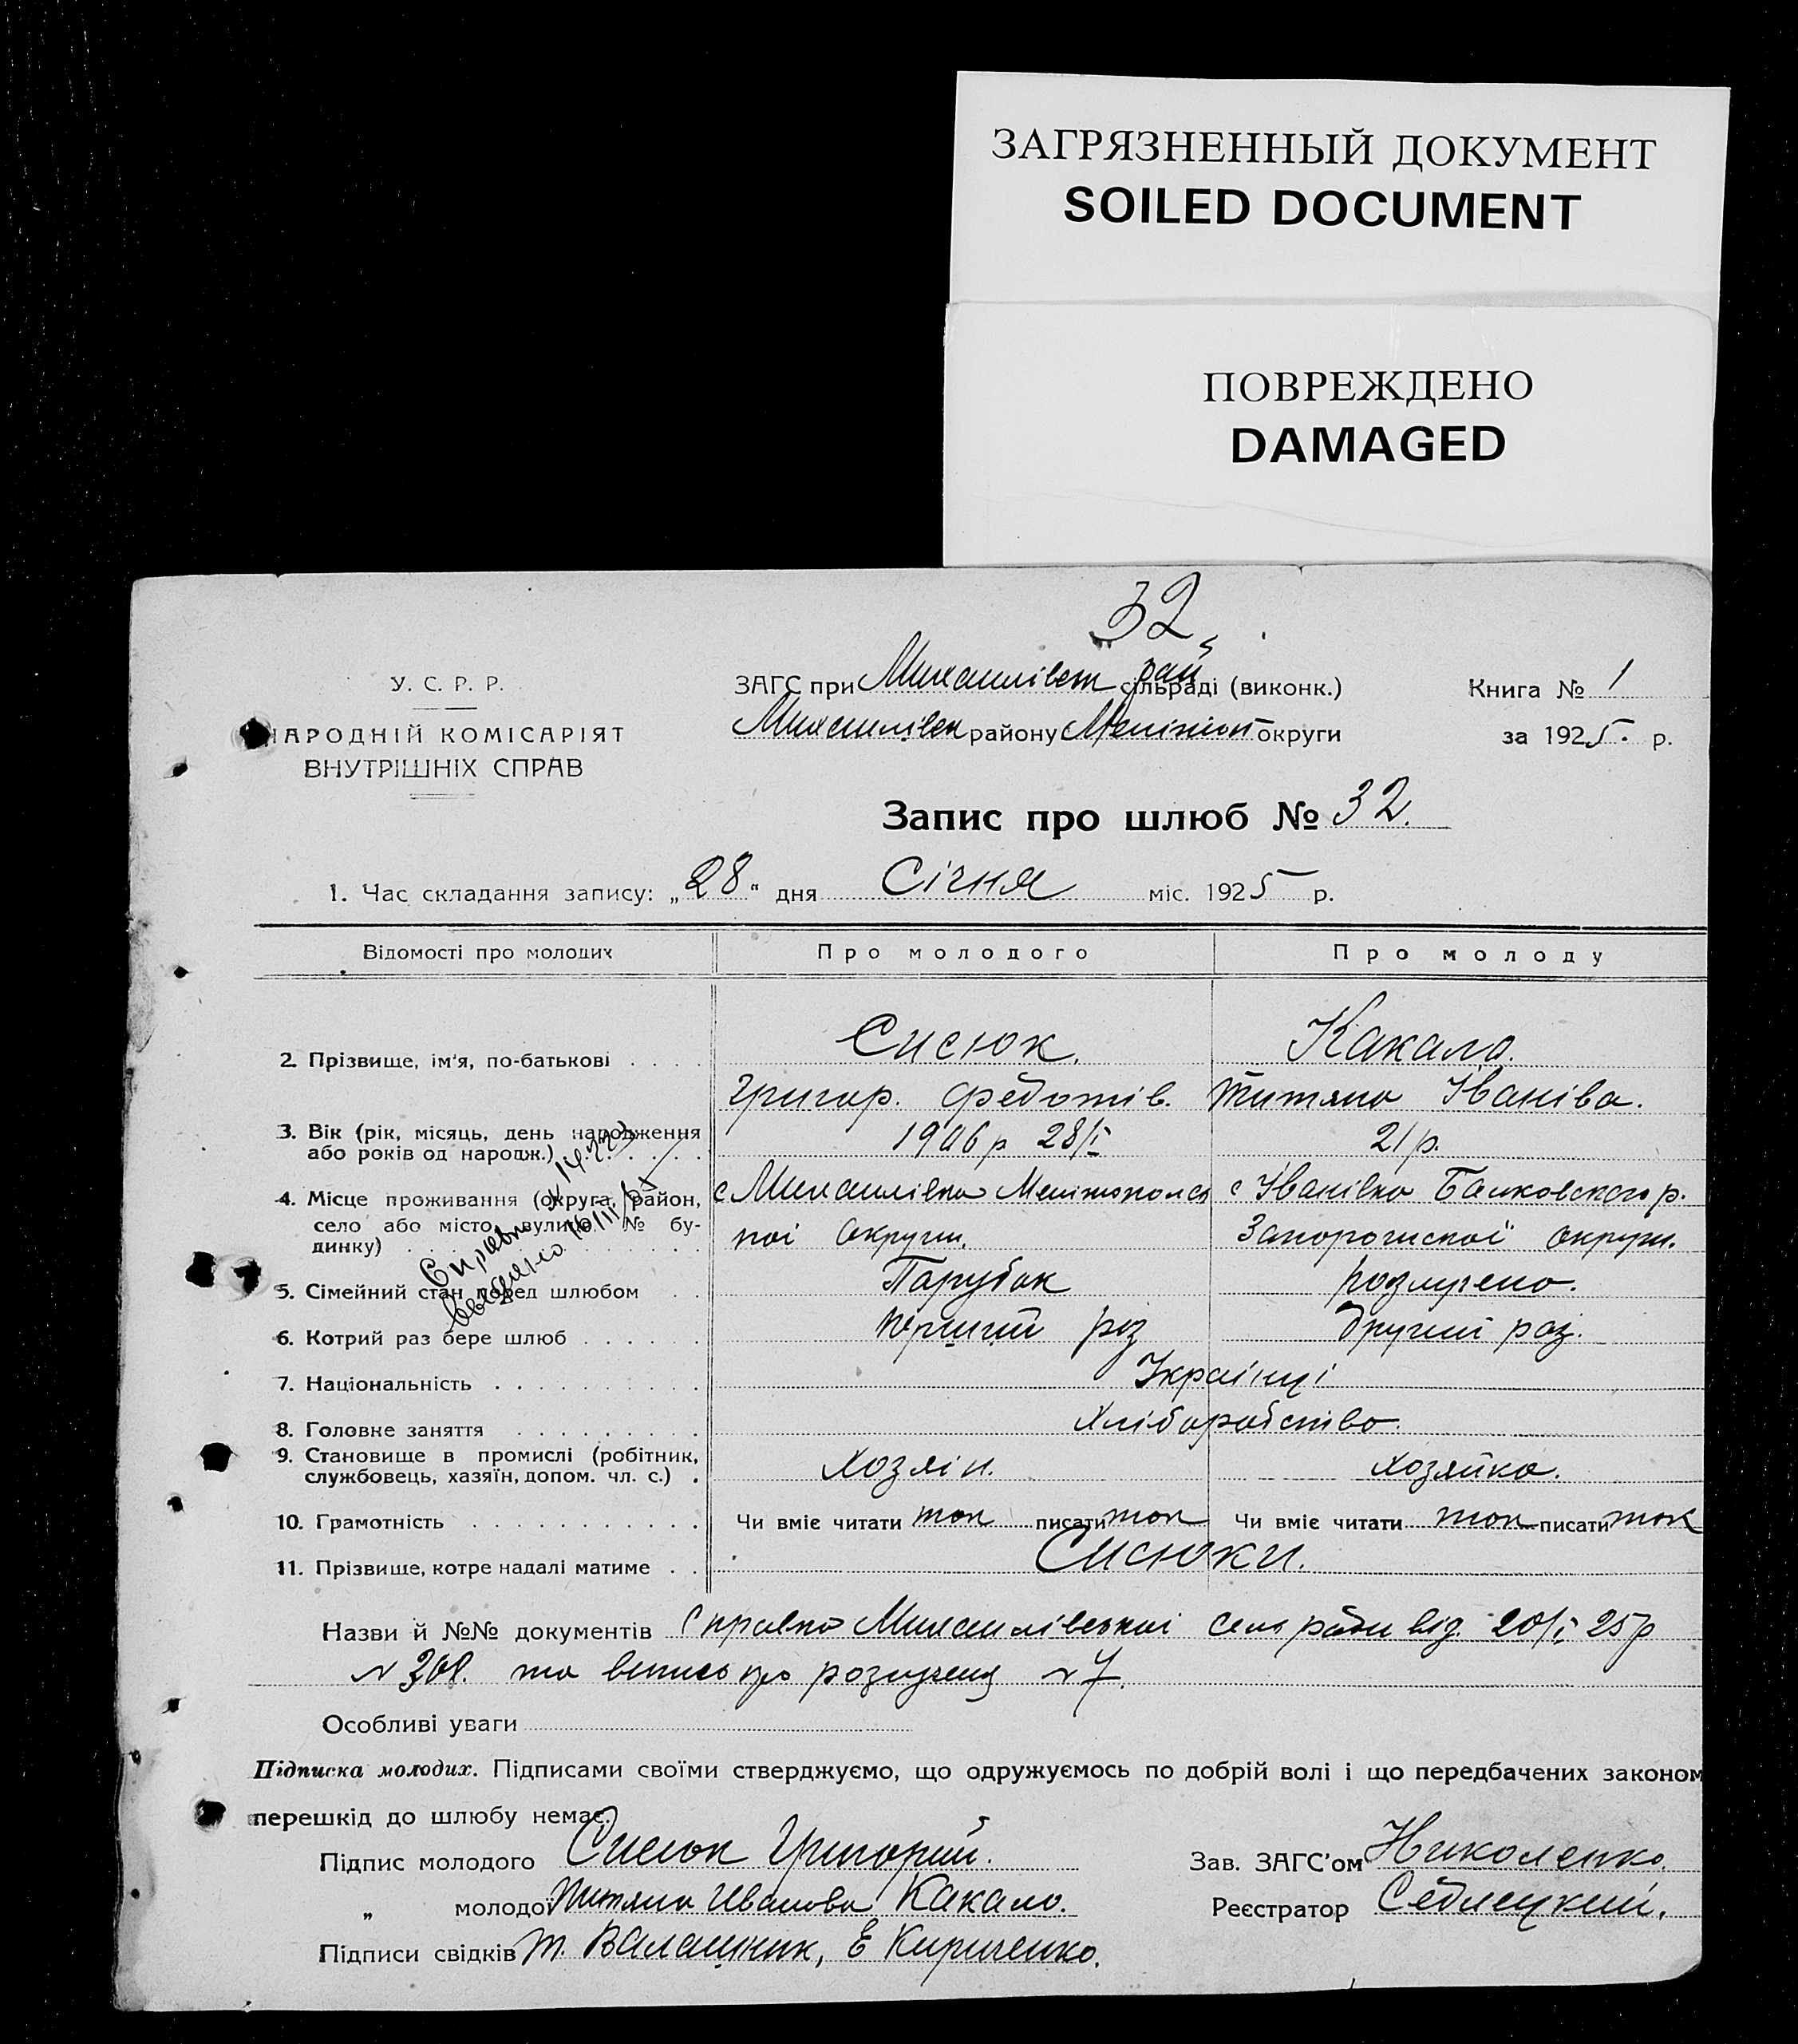 ЗАГРЯЗНЕННЫЙ ДОКУМЕНТ
SOILED DOCUMENT
ПОВРЕЖДЕНО
DAMAGED
32
У. С. Р. Р.
НАРОДНІЙ КОМІСАРІЯТ
ВНУТРІШНІХ СПРАВ
ЗАГС при Михайлівськ рай сільраді (виконк.)
Михайлівськ району Мелітоп округи
Книга № 1
за 1925 р.
Запис про шлюб № 32.
1. Час складання запису: „28“ дня Січня міс. 1925 р.
Відомості про молодих Про молодого Про молоду
2. Прізвище, ім'я, по-батькові . . . . Сисюк. Какало.
Григор. Федотів. Титяна Іваніва.
3. Вік (рік, місяць, день народження або років од народж.) 1906 р 28/I 21 р.
4. Місце проживання (округа, район, село або місто, вулиця, № будинку) с Михайлівка Мелітопольс с Іванівка Балковського р.
кої округи. Запорожскої округи.
Справку
5. Сімейний стан перед шлюбом . . Парубок розлучено.
6. Котрий раз бере шлюб . . . . . перший раз другий раз.
7. Національність . . . . . . . . . . Українці
8. Головне заняття . . . . . . . . . Хліборобство.
9. Становище в промислі (робітник, службовець, хазяїн, допом. чл. с.) . Хозяін. Хозяйка.
10. Грамотність . . . . . . . . . . . Чи вміє читати так писати так Чи вміє читати так писати так
11. Прізвище, котре надалі матиме . . Сисюки.
Назви й №№ документів Справка Михайлівської сельради від 20/I 25 р
та випись про розлучен № 7.
Особливі уваги
Підписка молодих. Підписами своїми стверджуємо, що одружуємось по добрій волі і що передбачених законом
перешкід до шлюбу немає.
Підпис молодого Сисюк Григорий. Зав. ЗАГС'ом Николенко.
„ молодої Титяна Иванова Какало. Реєстратор Седлецкий.
Підписи свідків Т. Валашник, Е Кириченко.